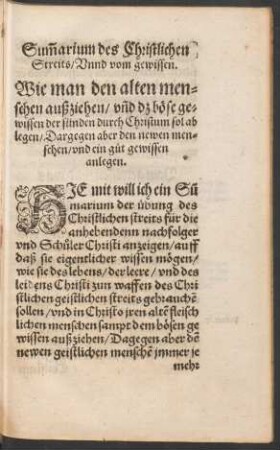 Sum̃arium des Christlichen
Streits/Vnnd vom gewissen.
Wie man den alten men-
schen außziehen/ vñd dz böse ge-
wissen der sünden durch Christum sol ab
legen/ Dargegen aber den newen men-
schen/vnd ein gůt gewissen
anlegen.
HIE mit will ich ein Sũ
marium der übung des
Christlichen streits für die
anhebendenn nachfolger
vnd Schůler Christi anzeigen/auff
daß sie eigentlicher wissen mögen/
wie sie des lebens/ der leere/ vnd des
leidens Christi zun waffen des Chri
stlichen geistlichen streits gebrauchẽ
sollen/vnd in Christo jren altẽ fleisch
lichen menschen sampt dem bösen ge
wissen außziehen/ Dagegen aber dẽ
newen geistlichen menschẽ jmmer je
mehr